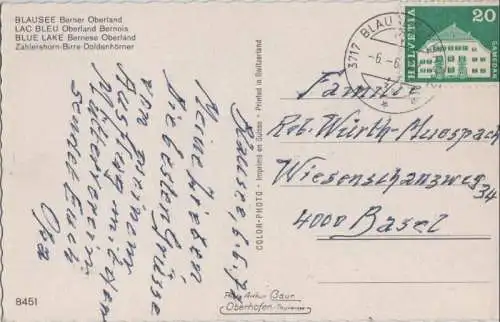 BLAUSEE Berner Oberland
LAC BLEU Oberland Bernois
BLUE LAKE Bernese Oberland
Zahlershorn-Birre-Doldenhörner
Blausee, 6.6.
Meine Lieben
die besten Grüsse
von meinem
Ausflug mit dem
Männerverein
sendet Euch
Opa
8451
COLOR-PHOTO - Imprimé en Suisse - Printed in Switzerland
Photo Arthur Baur
Oberhofen-Thunersee
3717 BLAU
-6.-6.
HELVETIA
20
SAMEDAN
Familie
Rob. Würth-Auspach
Wiesenschanzweg
34
4000 Basel